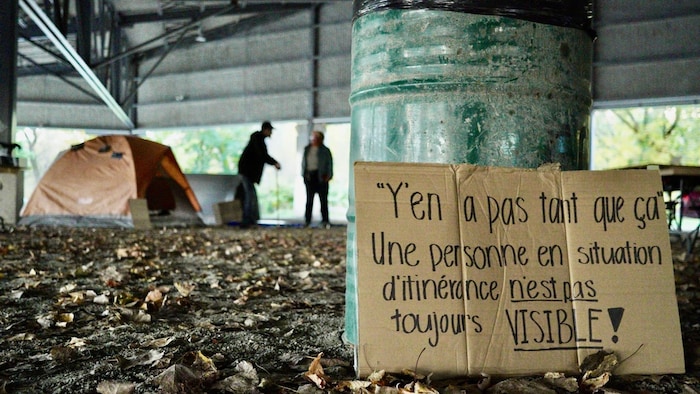 "Y'en a pas tant que ça"
Une personne en situation
d'itinérance n'est pas
toujours VISIBLE!